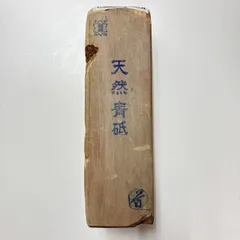 天然青砥